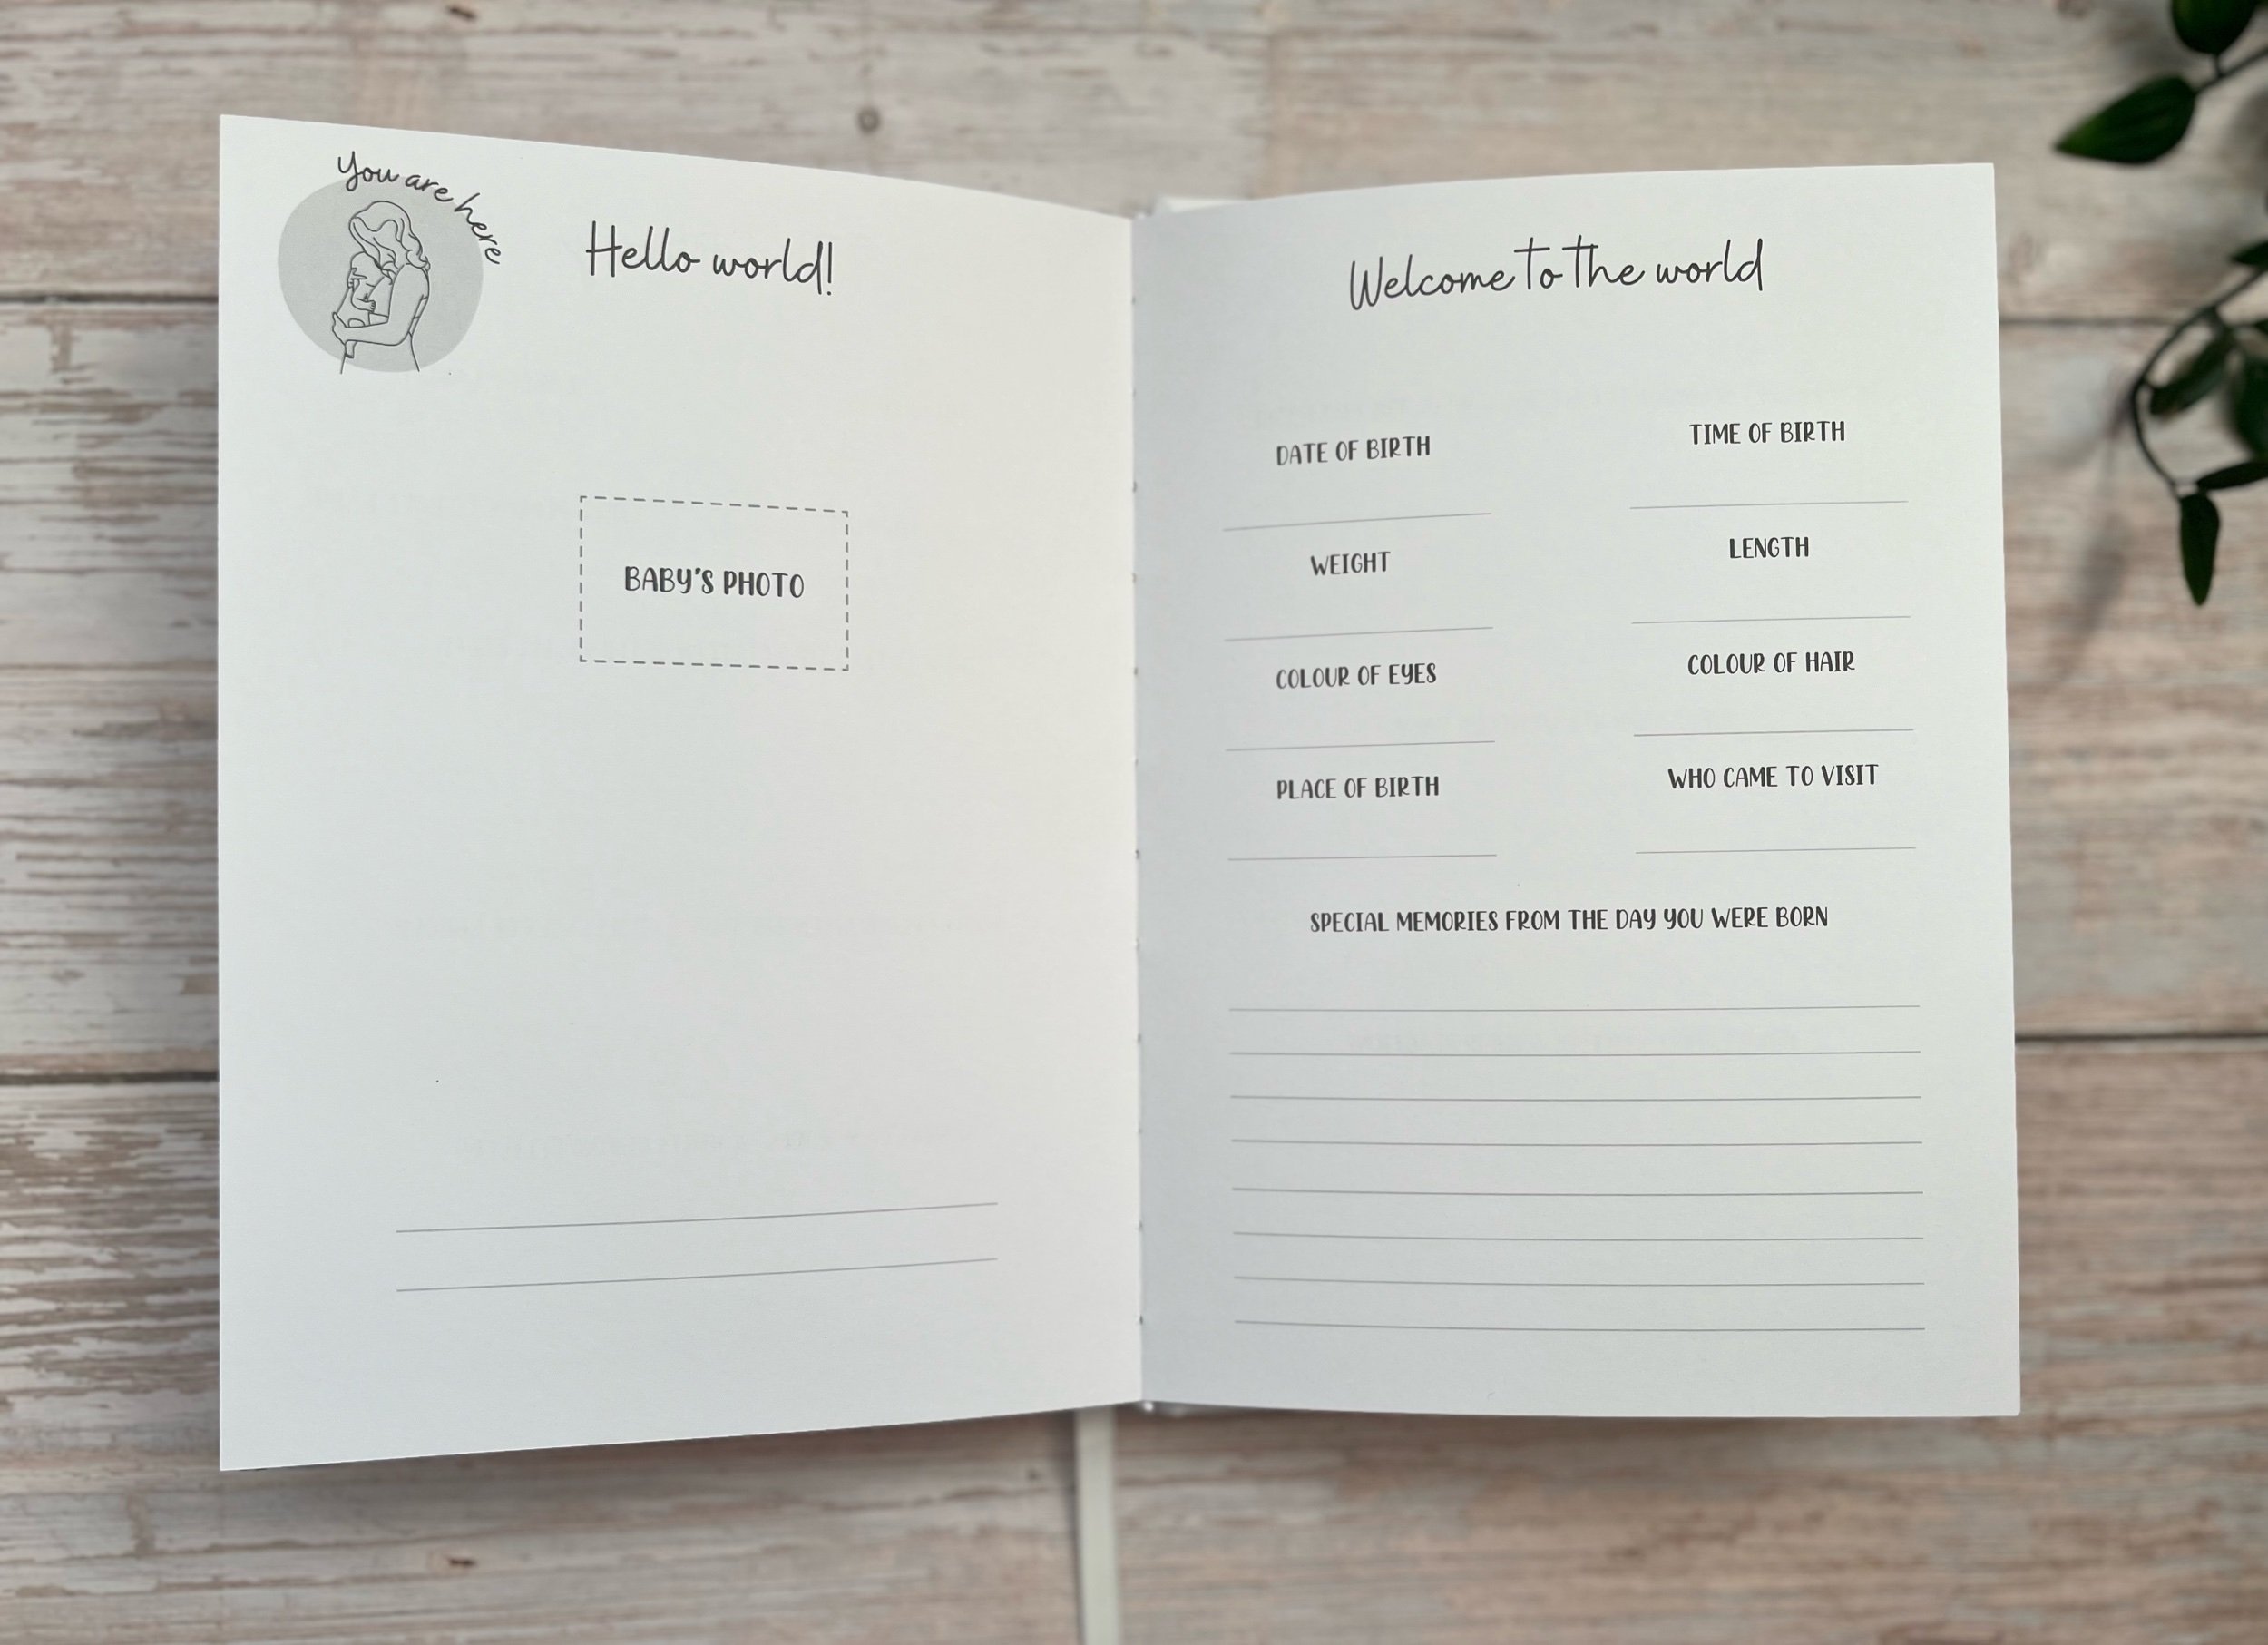 You are here
Hello world!
BABY'S PHOTO
Welcome to the world
DATE OF BIRTH
TIME OF BIRTH
WEIGHT
LENGTH
COLOUR OF EYES
COLOUR OF HAIR
PLACE OF BIRTH
WHO CAME TO VISIT
SPECIAL MEMORIES FROM THE DAY YOU WERE BORN